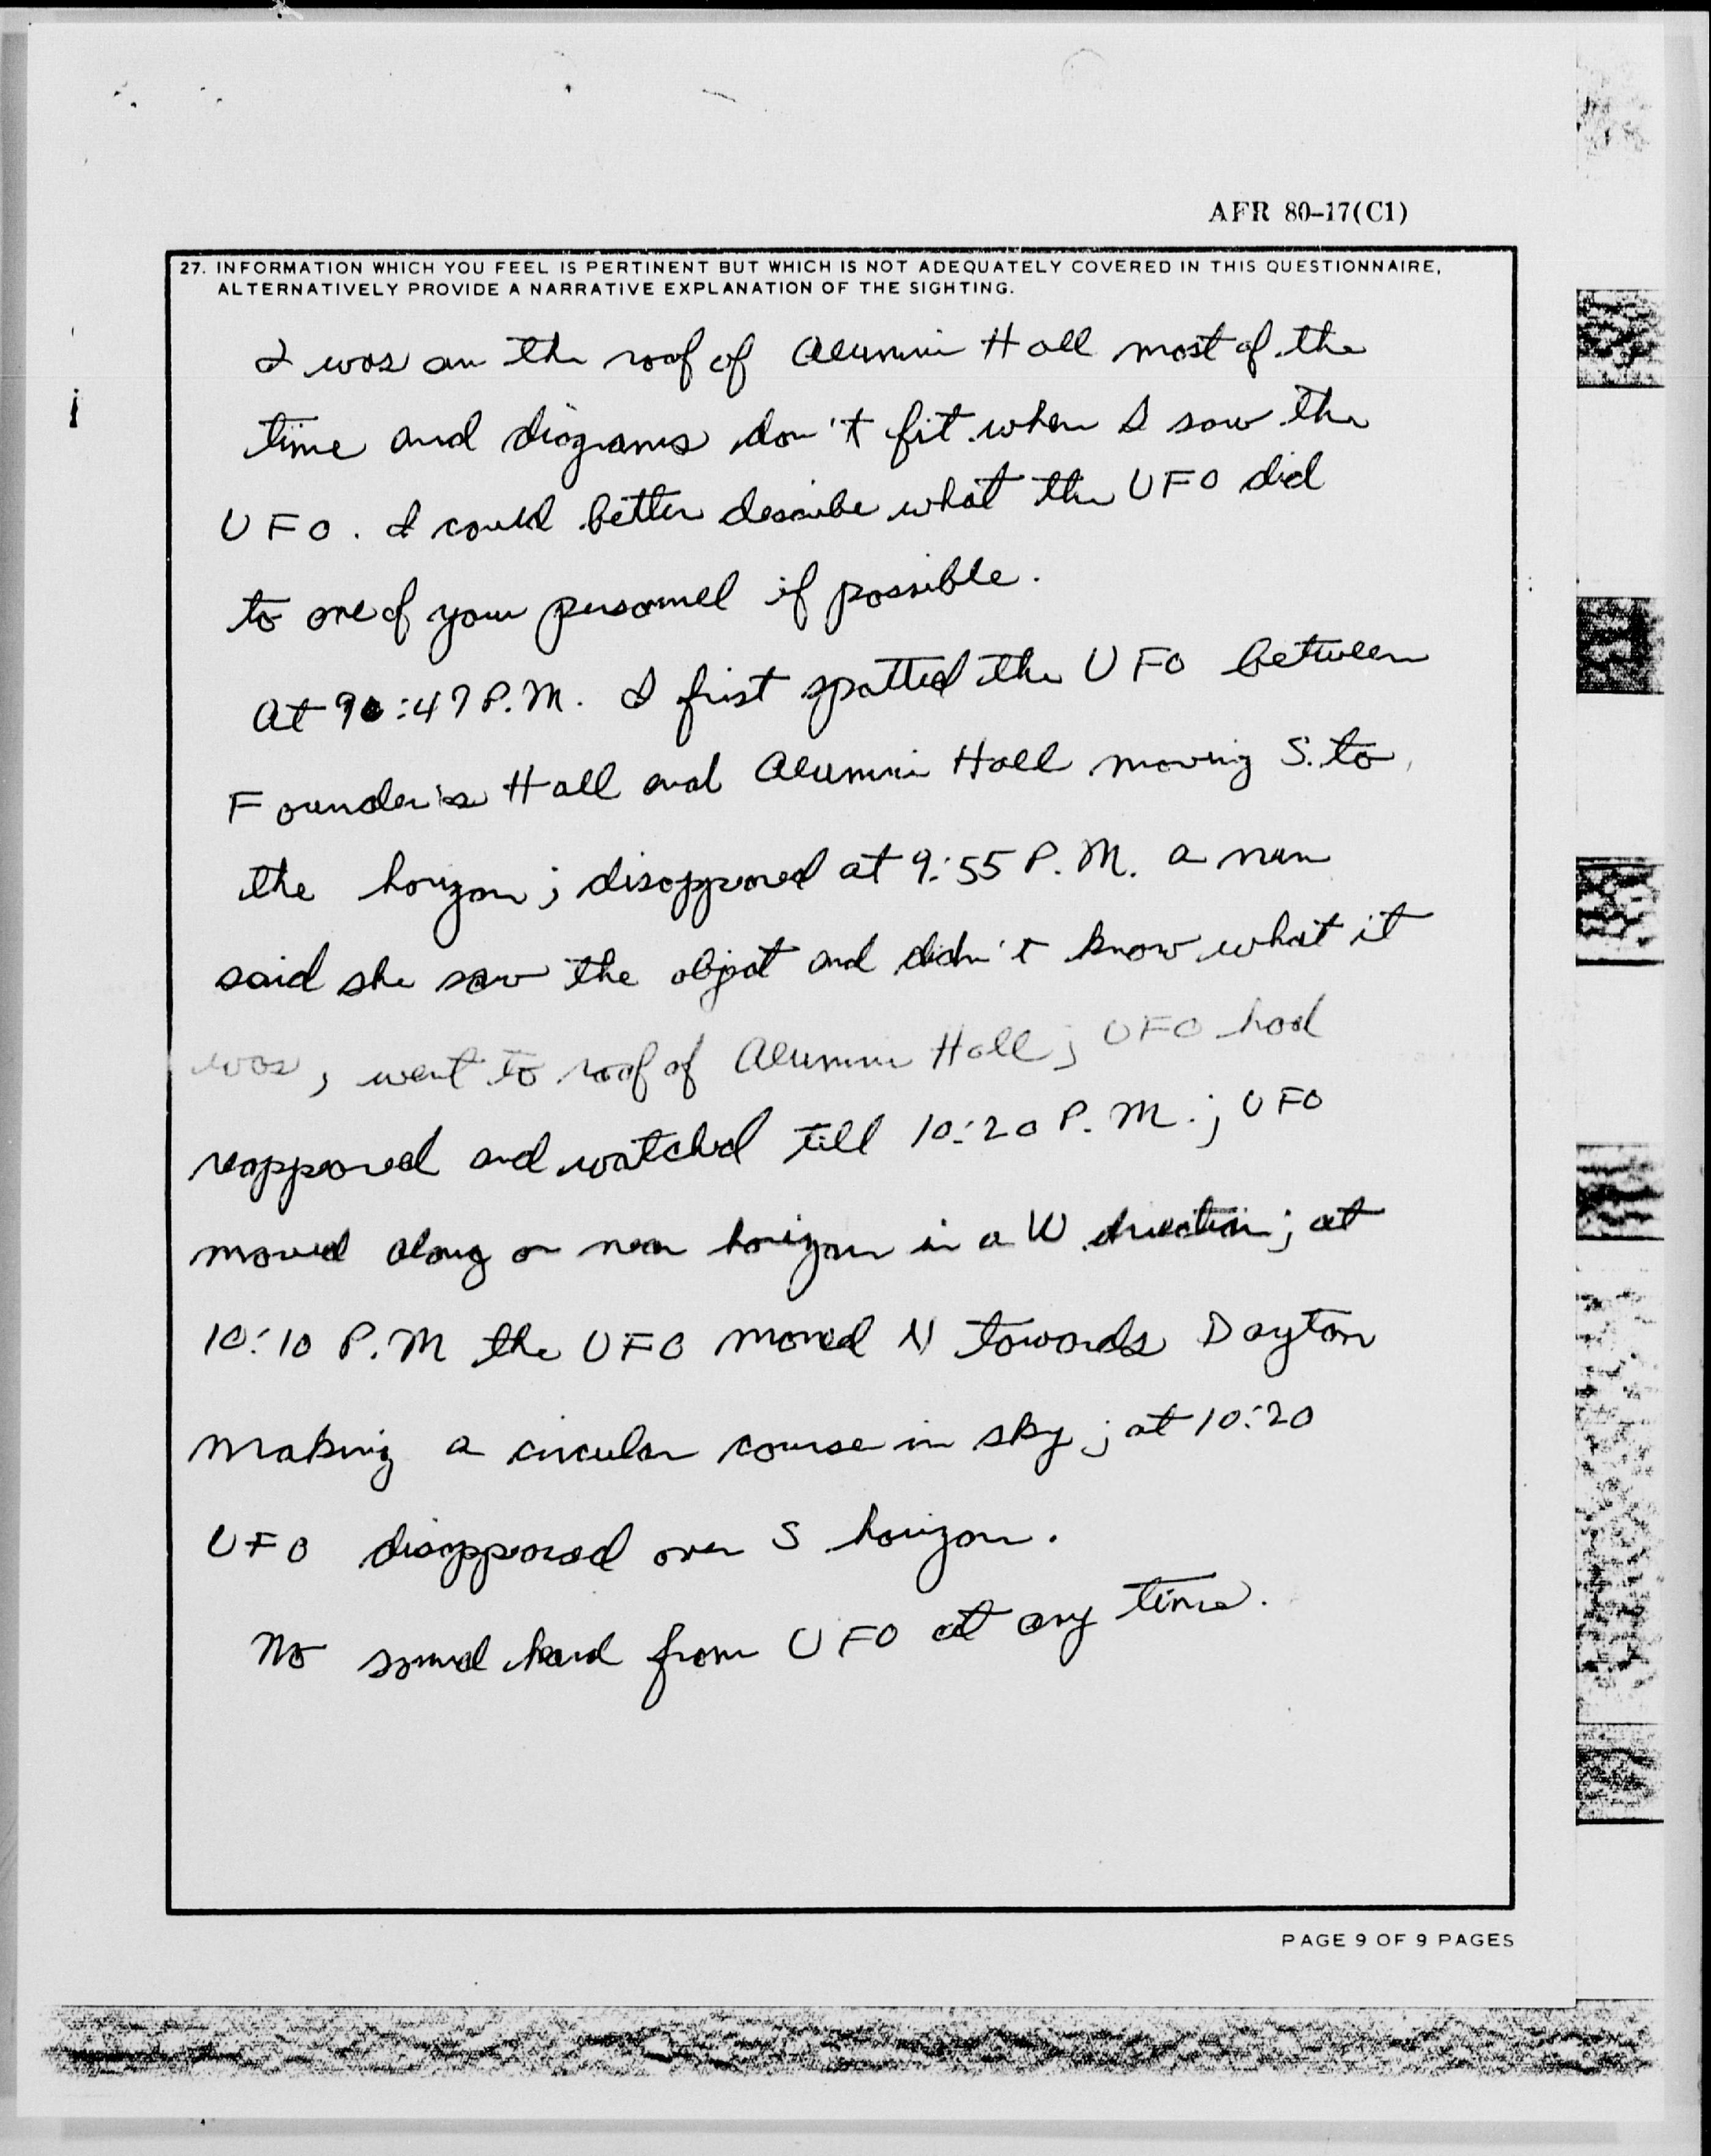 AFR 80–17(C1)
27. INFORMATION WHICH YOU FEEL IS PERTINENT BUT WHICH IS NOT ADEQUATELY COVERED IN THIS QUESTIONNAIRE,
ALTERNATIVELY PROVIDE A NARRATIVE EXPLANATION OF THE SIGHTING.
I was on the roof of Alumni Hall most of the
time and diagrams don't fit when I saw the
UFO. I could better describe what the UFO did
to one of your personnel if possible.
At 9:47 P.M. I first spotted the UFO between
Founder's Hall and Alumni Hall moving S. to
the horizon; disappeared at 9:55 P.M. a nun
said she saw the object and didn't know what it
was, went to roof of Alumni Hall; UFO had
reappeared and watched till 10:20 P.M.; UFO
moved along or near horizon in a W direction; at
10:10 P.M the UFO moved N towards Dayton
making a circular course in sky; at 10:20
UFO disappeared over S horizon.
No sound heard from UFO at any time.
PAGE 9 OF 9 PAGES